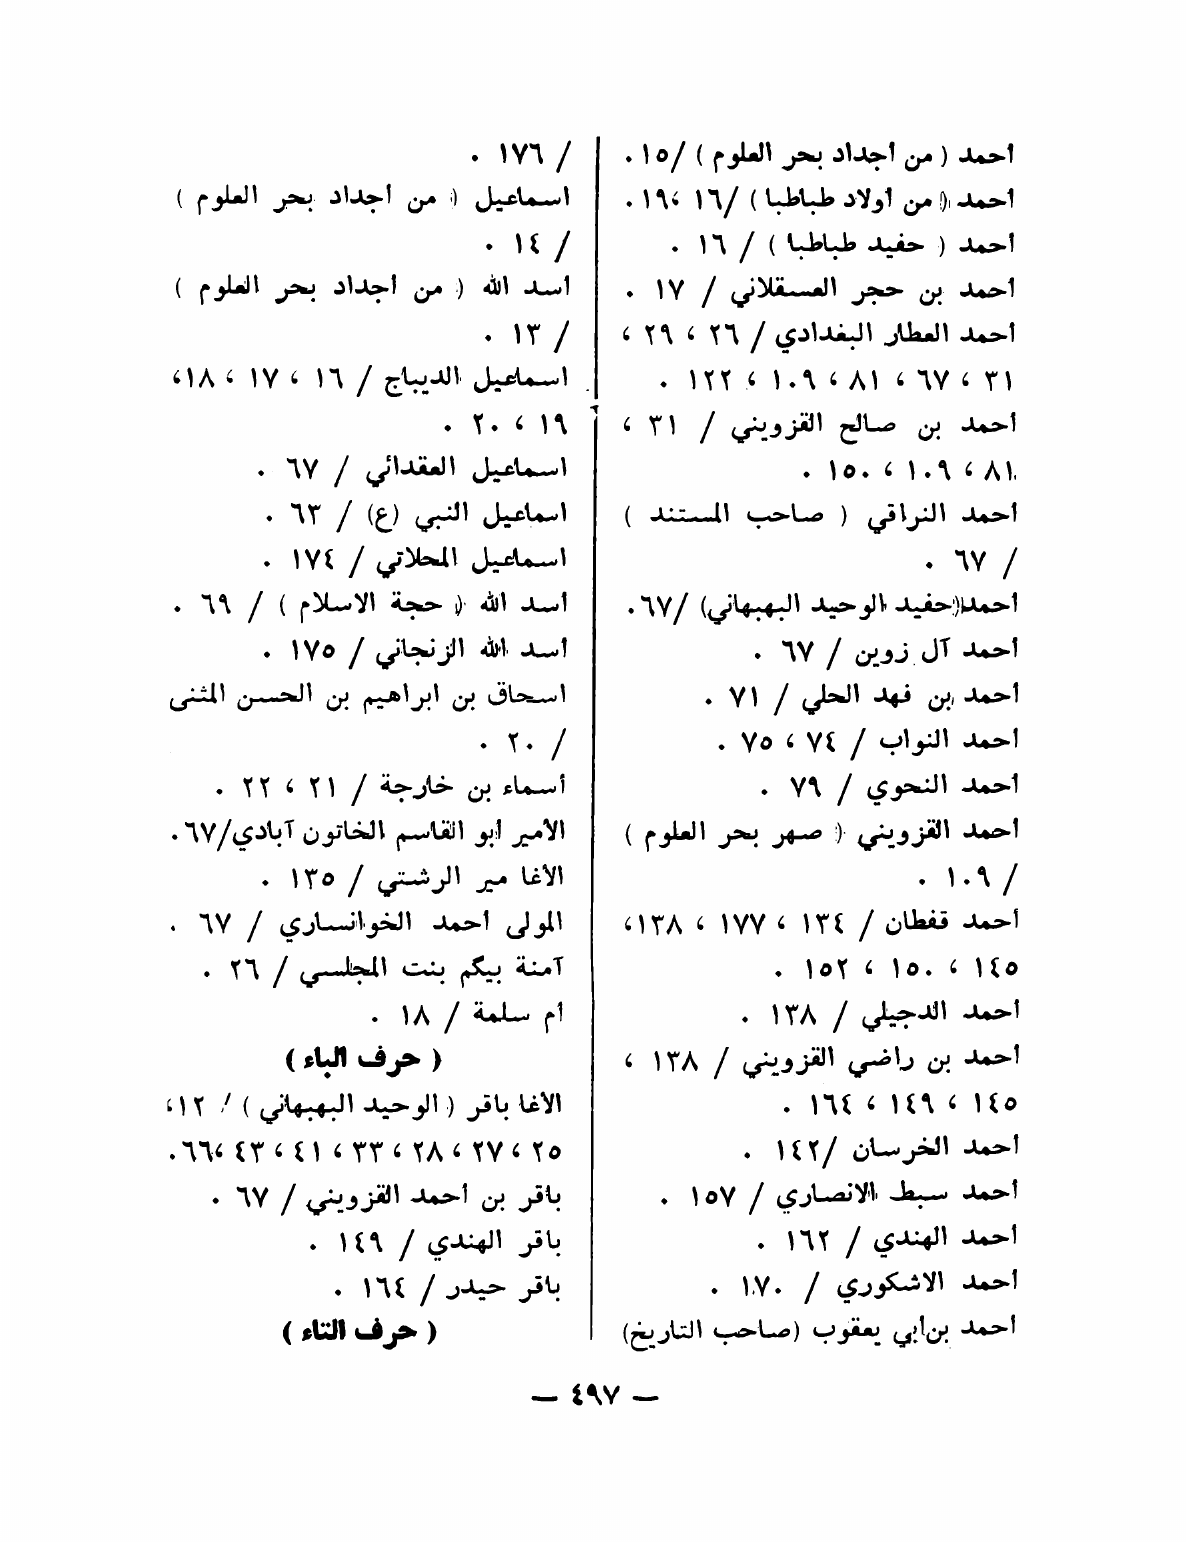 أحمد ( من أجداد بحر العلوم ) /١٥ .
أحمد ( من أولاد طباطبا ) /١٦ ،١٩ .
أحمد ( حفيد طباطبا ) / ١٦ .
أحمد بن حجر العسقلاني / ١٧ .
أحمد العطار البغدادي / ٢٦ ، ٢٩ ،
٣١ ، ٦٧ ، ٨١ ، ١٠٩ ، ١٢٢ .
أحمد بن صالح القزويني / ٣١ ،
٨١ ، ١٠٩ ، ١٥٠ .
أحمد النراقي ( صاحب المستند )
/ ٦٧ .
أحمد (حفيد الوحيد البهبهاني) /٦٧ .
أحمد آل زوين / ٦٧ .
أحمد بن فهد الحلي / ٧١ .
أحمد النواب / ٧٤ ، ٧٥ .
أحمد النحوي / ٧٩ .
أحمد القزويني ( صهر بحر العلوم )
/ ١٠٩ .
أحمد قفطان / ١٣٤ ، ١٧٧ ، ١٣٨،
١٤٥ ، ١٥٠ ، ١٥٢ .
أحمد الدجيلي / ١٣٨ .
أحمد بن راضي القزويني / ١٣٨ ،
١٤٥ ، ١٤٩ ، ١٦٤ .
أحمد الخرسان /١٤٢ .
أحمد سبط الانصاري / ١٥٧ .
أحمد الهندي / ١٦٢ .
أحمد الاشكوري / ١٧٠ .
أحمد بن أبي يعقوب (صاحب التاريخ)
/ ١٧٦ .
اسماعيل ( من أجداد بحر العلوم )
/ ١٤ .
أسد الله ( من أجداد بحر العلوم )
/ ١٣ .
اسماعيل الديباج / ١٦ ، ١٧ ، ١٨،
١٩ ، ٢٠ .
اسماعيل العقدائي / ٦٧ .
اسماعيل النبي (ع) / ٦٣ .
اسماعيل المحلاتي / ١٧٤ .
أسد الله ( حجة الاسلام ) / ٦٩ .
أسد الله الزنجاني / ١٧٥ .
اسحاق بن ابراهيم بن الحسن المثنى
/ ٢٠ .
أسماء بن خارجة / ٢١ ، ٢٢ .
الأمير أبو القاسم الخاتون آبادي/٦٧ .
الأغا مير الرشتي / ١٣٥ .
المولى أحمد الخوانساري / ٦٧ .
آمنة بيگم بنت المجلسي / ٢٦ .
أم سلمة / ١٨ .
( حرف الباء )
الأغا باقر ( الوحيد البهبهاني ) / ١٢،
٢٥ ، ٢٧ ، ٢٨ ، ٣٣ ، ٤١ ، ٤٣ ،٦٦ .
باقر بن أحمد القزويني / ٦٧ .
باقر الهندي / ١٤٩ .
باقر حيدر / ١٦٤ .
( حرف التاء )
— ٤٩٧ —